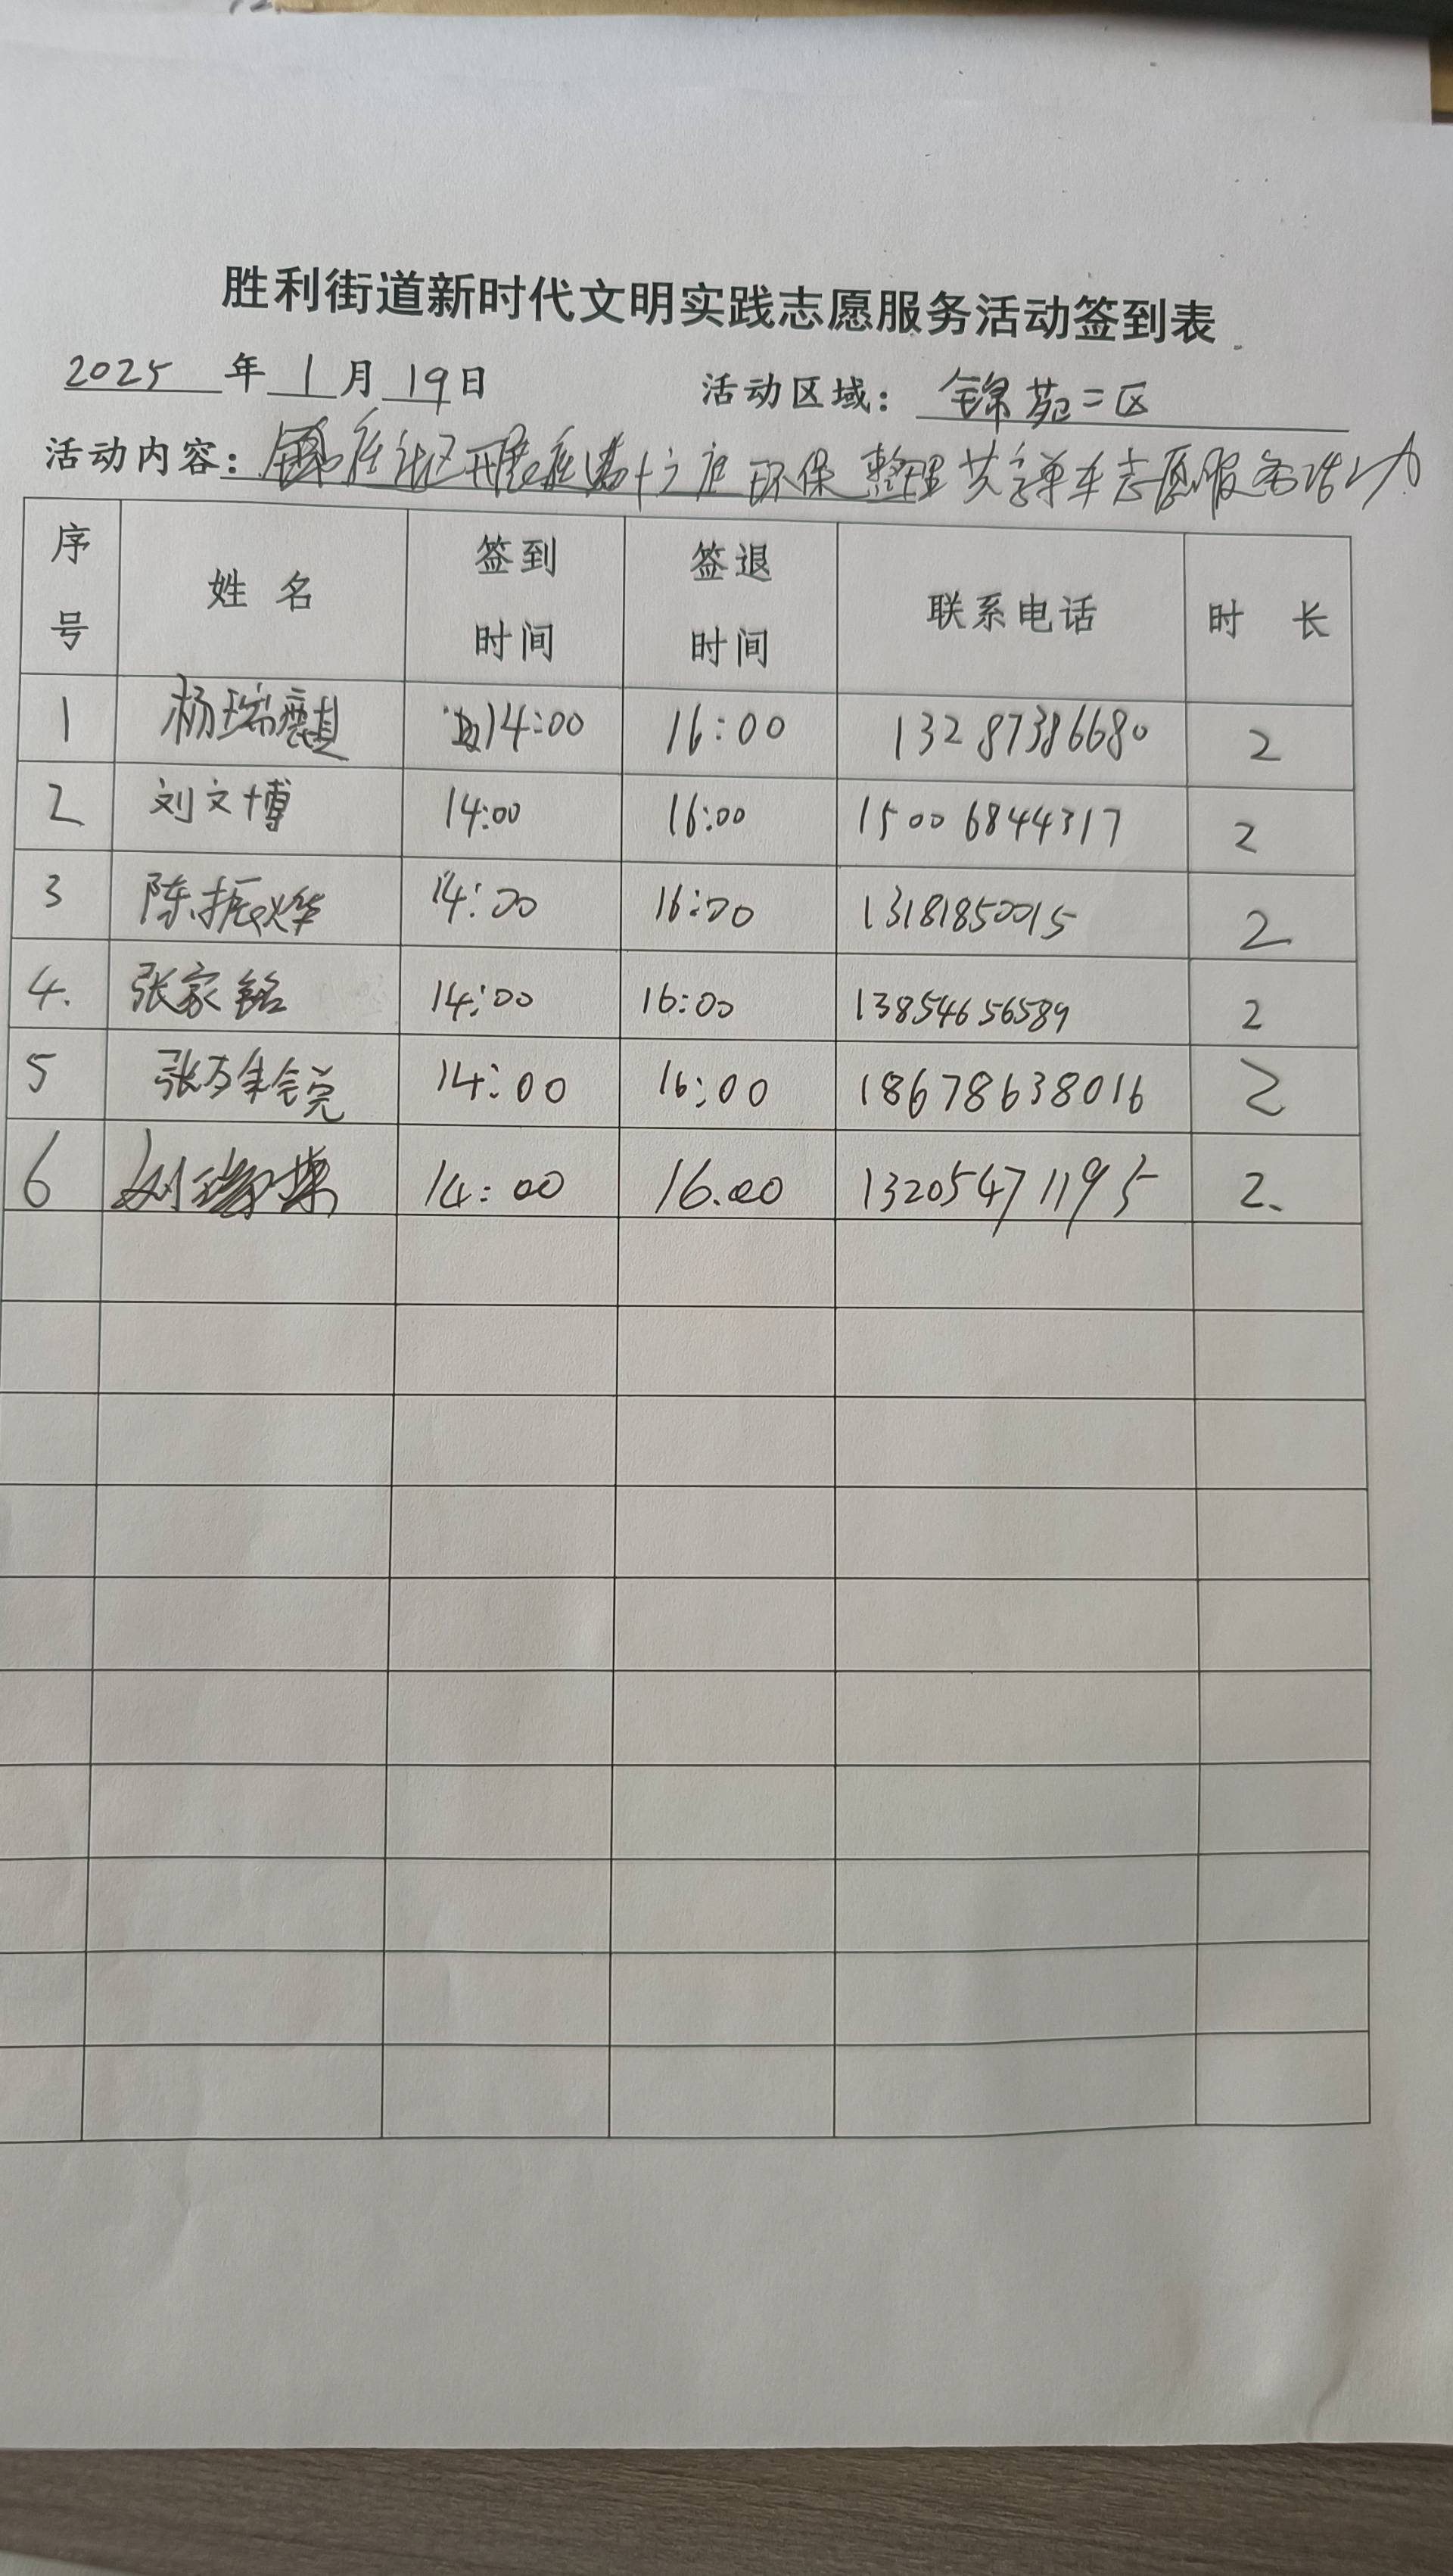 胜利街道新时代文明实践志愿服务活动签到表
2025 年 1 月 19 日 活动区域: 锦苑二区
活动内容: 社区开展 环保 整理共享单车志愿服务活动
序号 姓名 签到时间 签退时间 联系电话 时长
1 杨瑞 14:00 16:00 13287386680 2
2 刘文博 14:00 16:00 15006844317 2
3 陈振烨 14:00 16:00 13181850015 2
4. 张家铭 14:00 16:00 13854656589 2
5 张 14:00 16:00 18678638016 2
6 刘瑞 14:00 16.00 13205471195 2.